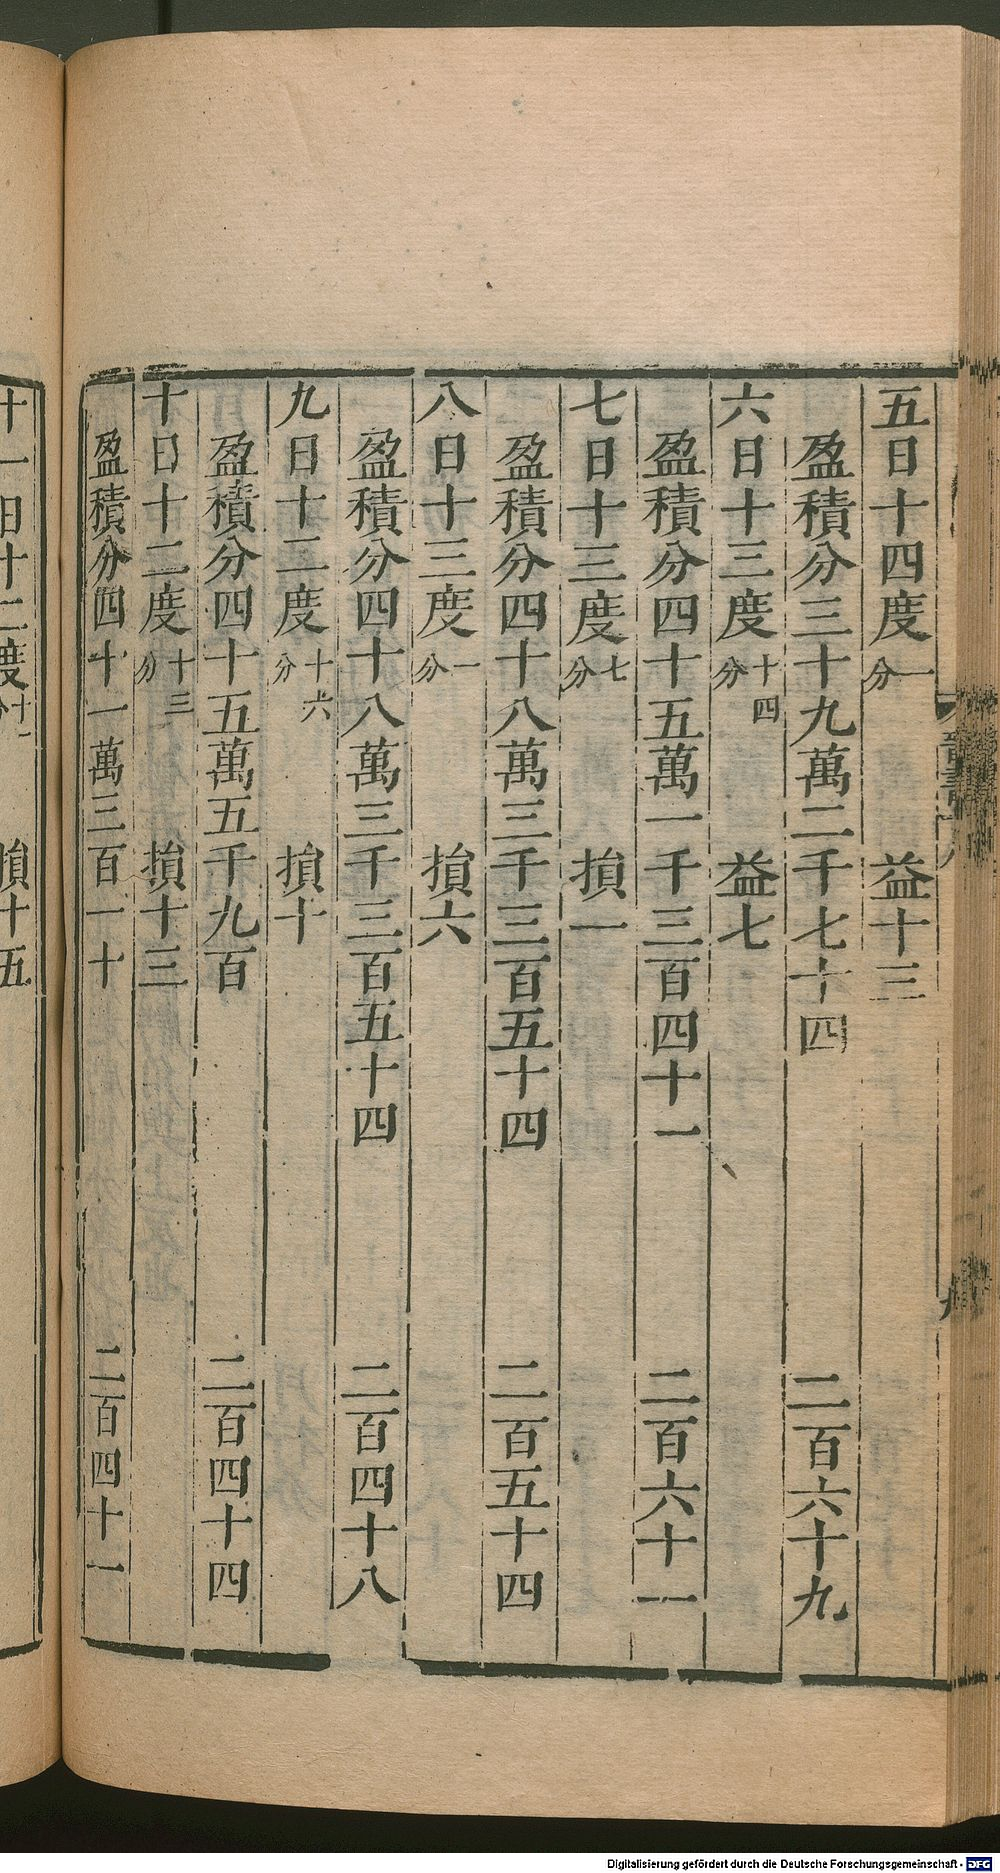 五日十四度一分　益十三
盈積分三十九萬二千七十四　二百六十九
六日十三度十四分　益七
盈積分四十五萬一千三百四十一　二百六十一
七日十三度七分　損一
盈積分四十八萬三千三百五十四　二百五十四
八日十三度一分　損六
盈積分四十八萬三千三百五十四　二百四十八
九日十二度十六分　損十
盈積分四十五萬五千九百　二百四十四
十日十二度十三分　損十三
盈積分四十一萬三百一十　二百四十一
十一日十二度十一分　損十五
Digitalisierung gefördert durch die Deutsche Forschungsgemeinschaft - DFG